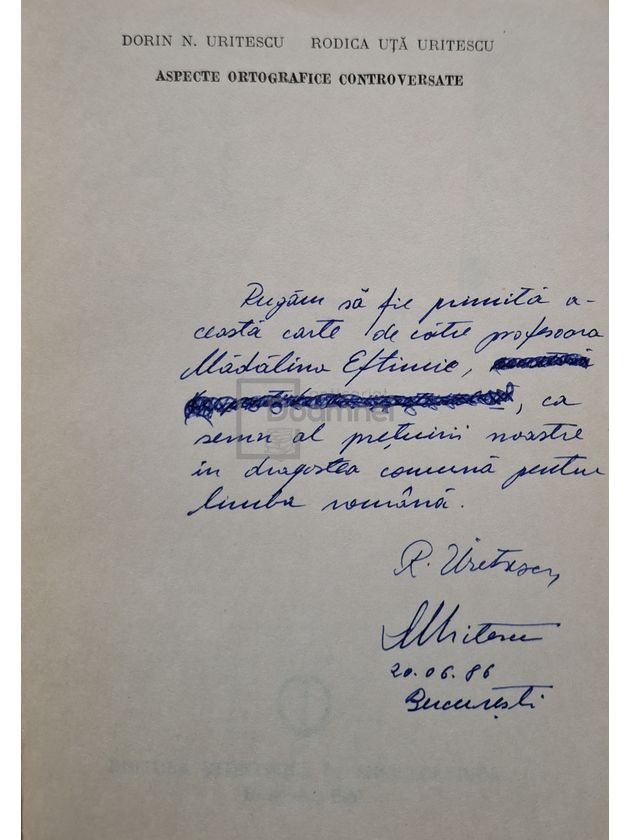 DORIN N. URITESCU RODICA UȚĂ URITESCU
ASPECTE ORTOGRAFICE CONTROVERSATE
Rugăm să fie primită a-
ceastă carte de către profesoara
Mădălina Eftimie,
, ca
semn al prețuirii noastre
în dragostea comună pentru
limba română.
R. Uritescu
Uritescu
20.06.86
București